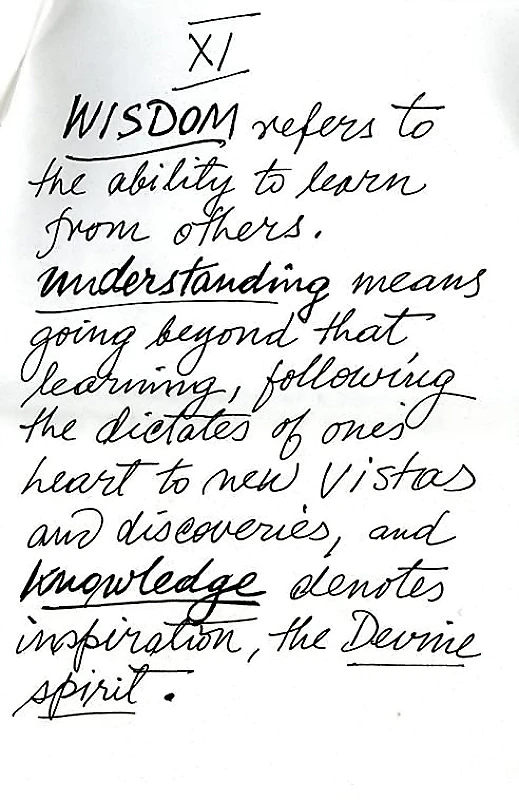 XI
WISDOM refers to
the ability to learn
from others.
understanding means
going beyond that
learning, following
the dictates of one's
heart to new vistas
and discoveries, and
knowledge denotes
inspiration, the Devine
spirit.